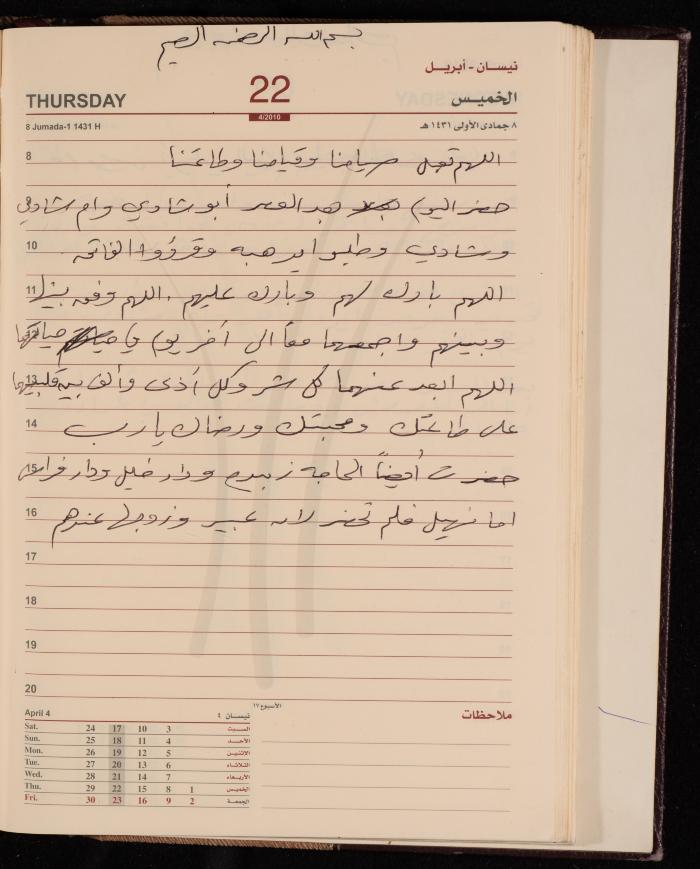 بسم الله الرحمن الرحيم
نيسان - أبريل
THURSDAY 22 الخميس
4/2010
8 Jumada-1 1431 H ٨ جمادى الأولى ١٤٣١ هـ
8 اللهم تقبل صيامنا وقيامنا وطاعتنا
حضر اليوم بعد العصر أبو شادي وام شادي
10 وشادي وطلبوا يد هبه وقرؤوا الفاتحة
11 اللهم بارك لهم وبارك عليهم . اللهم وفق بيننا
وبينهم واجمعهما معاً الى آخر يوم في حياتهما
13 اللهم ابعد عنهما كل شر وكل أذى وألف بين قلبيهما
14 على طاعتك ومحبتك ورضاك يا رب
15 حضرت أيضاً الحاجه زبيده ودار خليل ودار فراس
16 اما نهيل فلم تحضر لانه عبير وزوجها عندهم
17
18
19
20
الأسبوع ١٧
April 4 نيسان ٤
Sat. 24 17 10 3 السبت
Sun. 25 18 11 4 الأحد
Mon. 26 19 12 5 الاثنين
Tue. 27 20 13 6 الثلاثاء
Wed. 28 21 14 7 الأربعاء
Thu. 29 22 15 8 1 الخميس
Fri. 30 23 16 9 2 الجمعة
ملاحظات